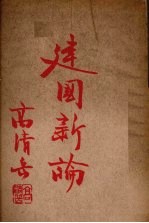 建國新論
高清岳